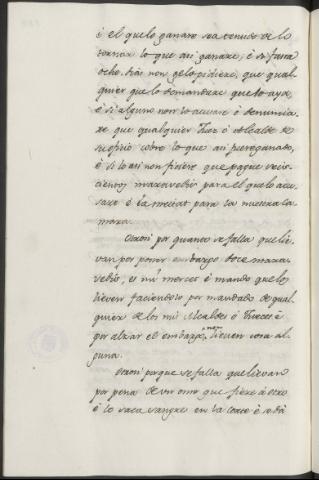 è el que lo ganare sea tenudo de lo
tornar lo que asi ganare, è si fasta
ocho dias non gelo pidiere, que qual
quier que lo demandare que lo aya,
è si alguno non lo acusare ò denuncia
re que qualquier Juez ò Alcalde de
su oficio sobre lo que asi
è si lo asi non ficiere que pague seis
cientos maravedis para el que lo acu
sare è la meitat para la nuestra Ca
mara.
Otrosi por quanto se falla que lie
van por poner embargo doce marave
vedis, es mi merced è mando que los
lieven faciendolo por mandado de qual
quier de los mis Alcaldes ò Jueces è
por alzar el embargo, non lieven cosa al
guna.
Otrosi porque se falla que llevan
por pena de un ome que fiere à otro
è lo saca sangre en la Corte è si dà